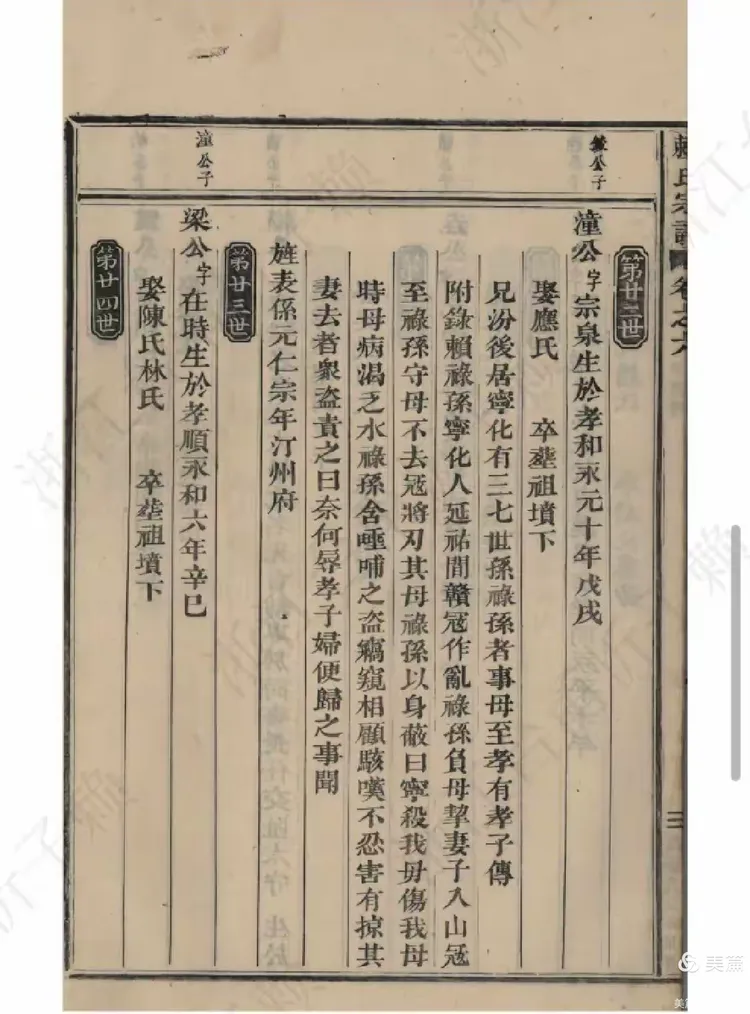 賴氏宗譜 卷之六
三
公子
第廿二世
潼公字宗泉生於孝和永元十年戊戌
娶應氏 卒塟祖墳下
兄汾後居寧化有三七世孫祿孫者事母至孝有孝子傳
附錄賴祿孫寧化人延祐間贛冦作亂祿孫負母挈妻子入山冦
至祿孫守母不去冦將刃其母祿孫以身蔽曰寧殺我毋傷我母
時母病渴乏水祿孫含唾哺之盜竊窺相顧駭嘆不忍害有掠其
妻去者衆盜責之曰奈何辱孝子婦便歸之事聞
旌表係元仁宗年汀州府
第廿三世
潼公子
梁公字在時生於孝順永和六年辛巳
娶陳氏林氏 卒塟祖墳下
第廿四世
美篇